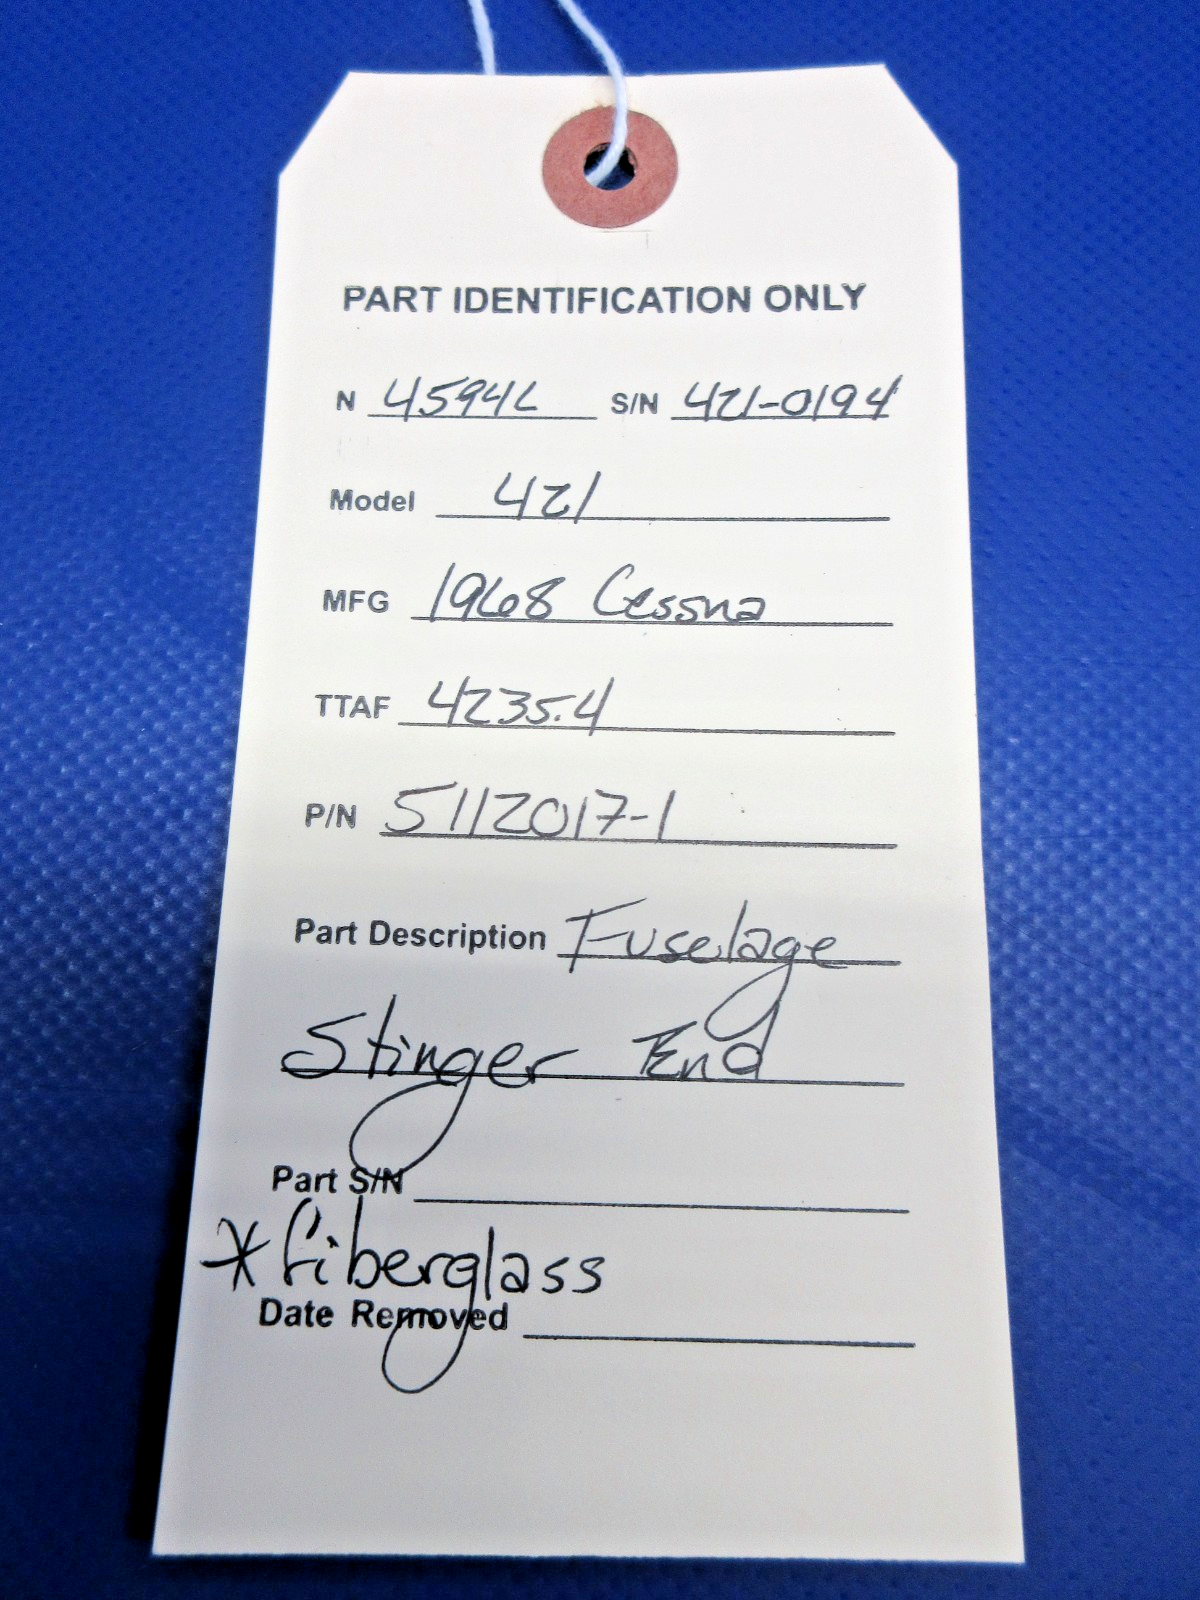 PART IDENTIFICATION ONLY
N 4594L S/N 421-0194
Model 421
MFG 1968 Cessna
TTAF 4235.4
P/N 5112017-1
Part Description Fuselage
Stinger End
Part S/N
*fiberglass
Date Removed